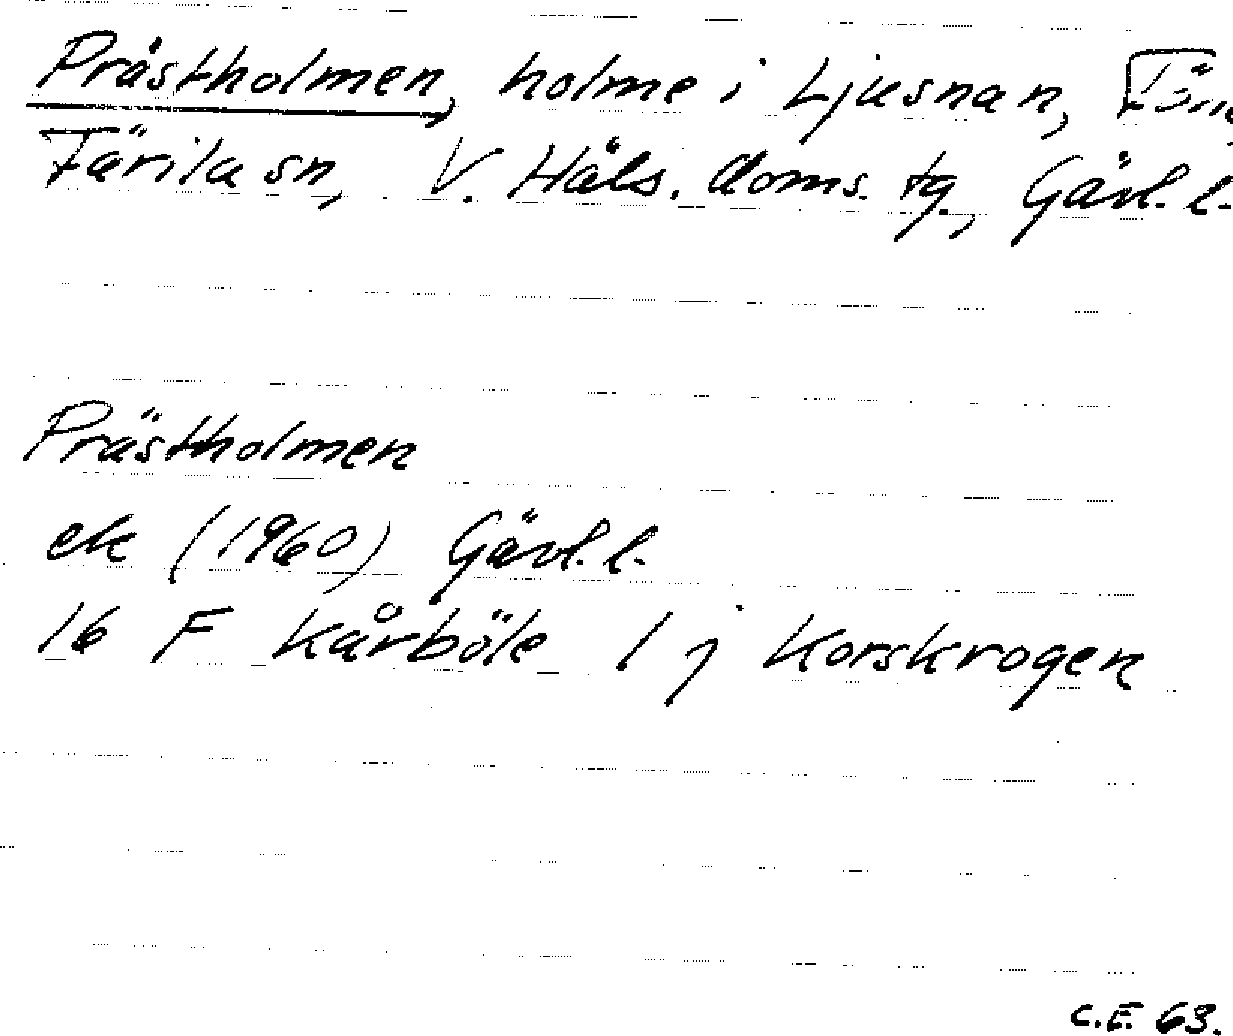 Prästholmen, holme i Ljusnan,
Färila sn, V. Häls. doms. tg., Gävl. l.
Prästholmen
ek (1960) Gävl. l.
16 F Kårböle 1 j Korskrogen
C.E. 63.